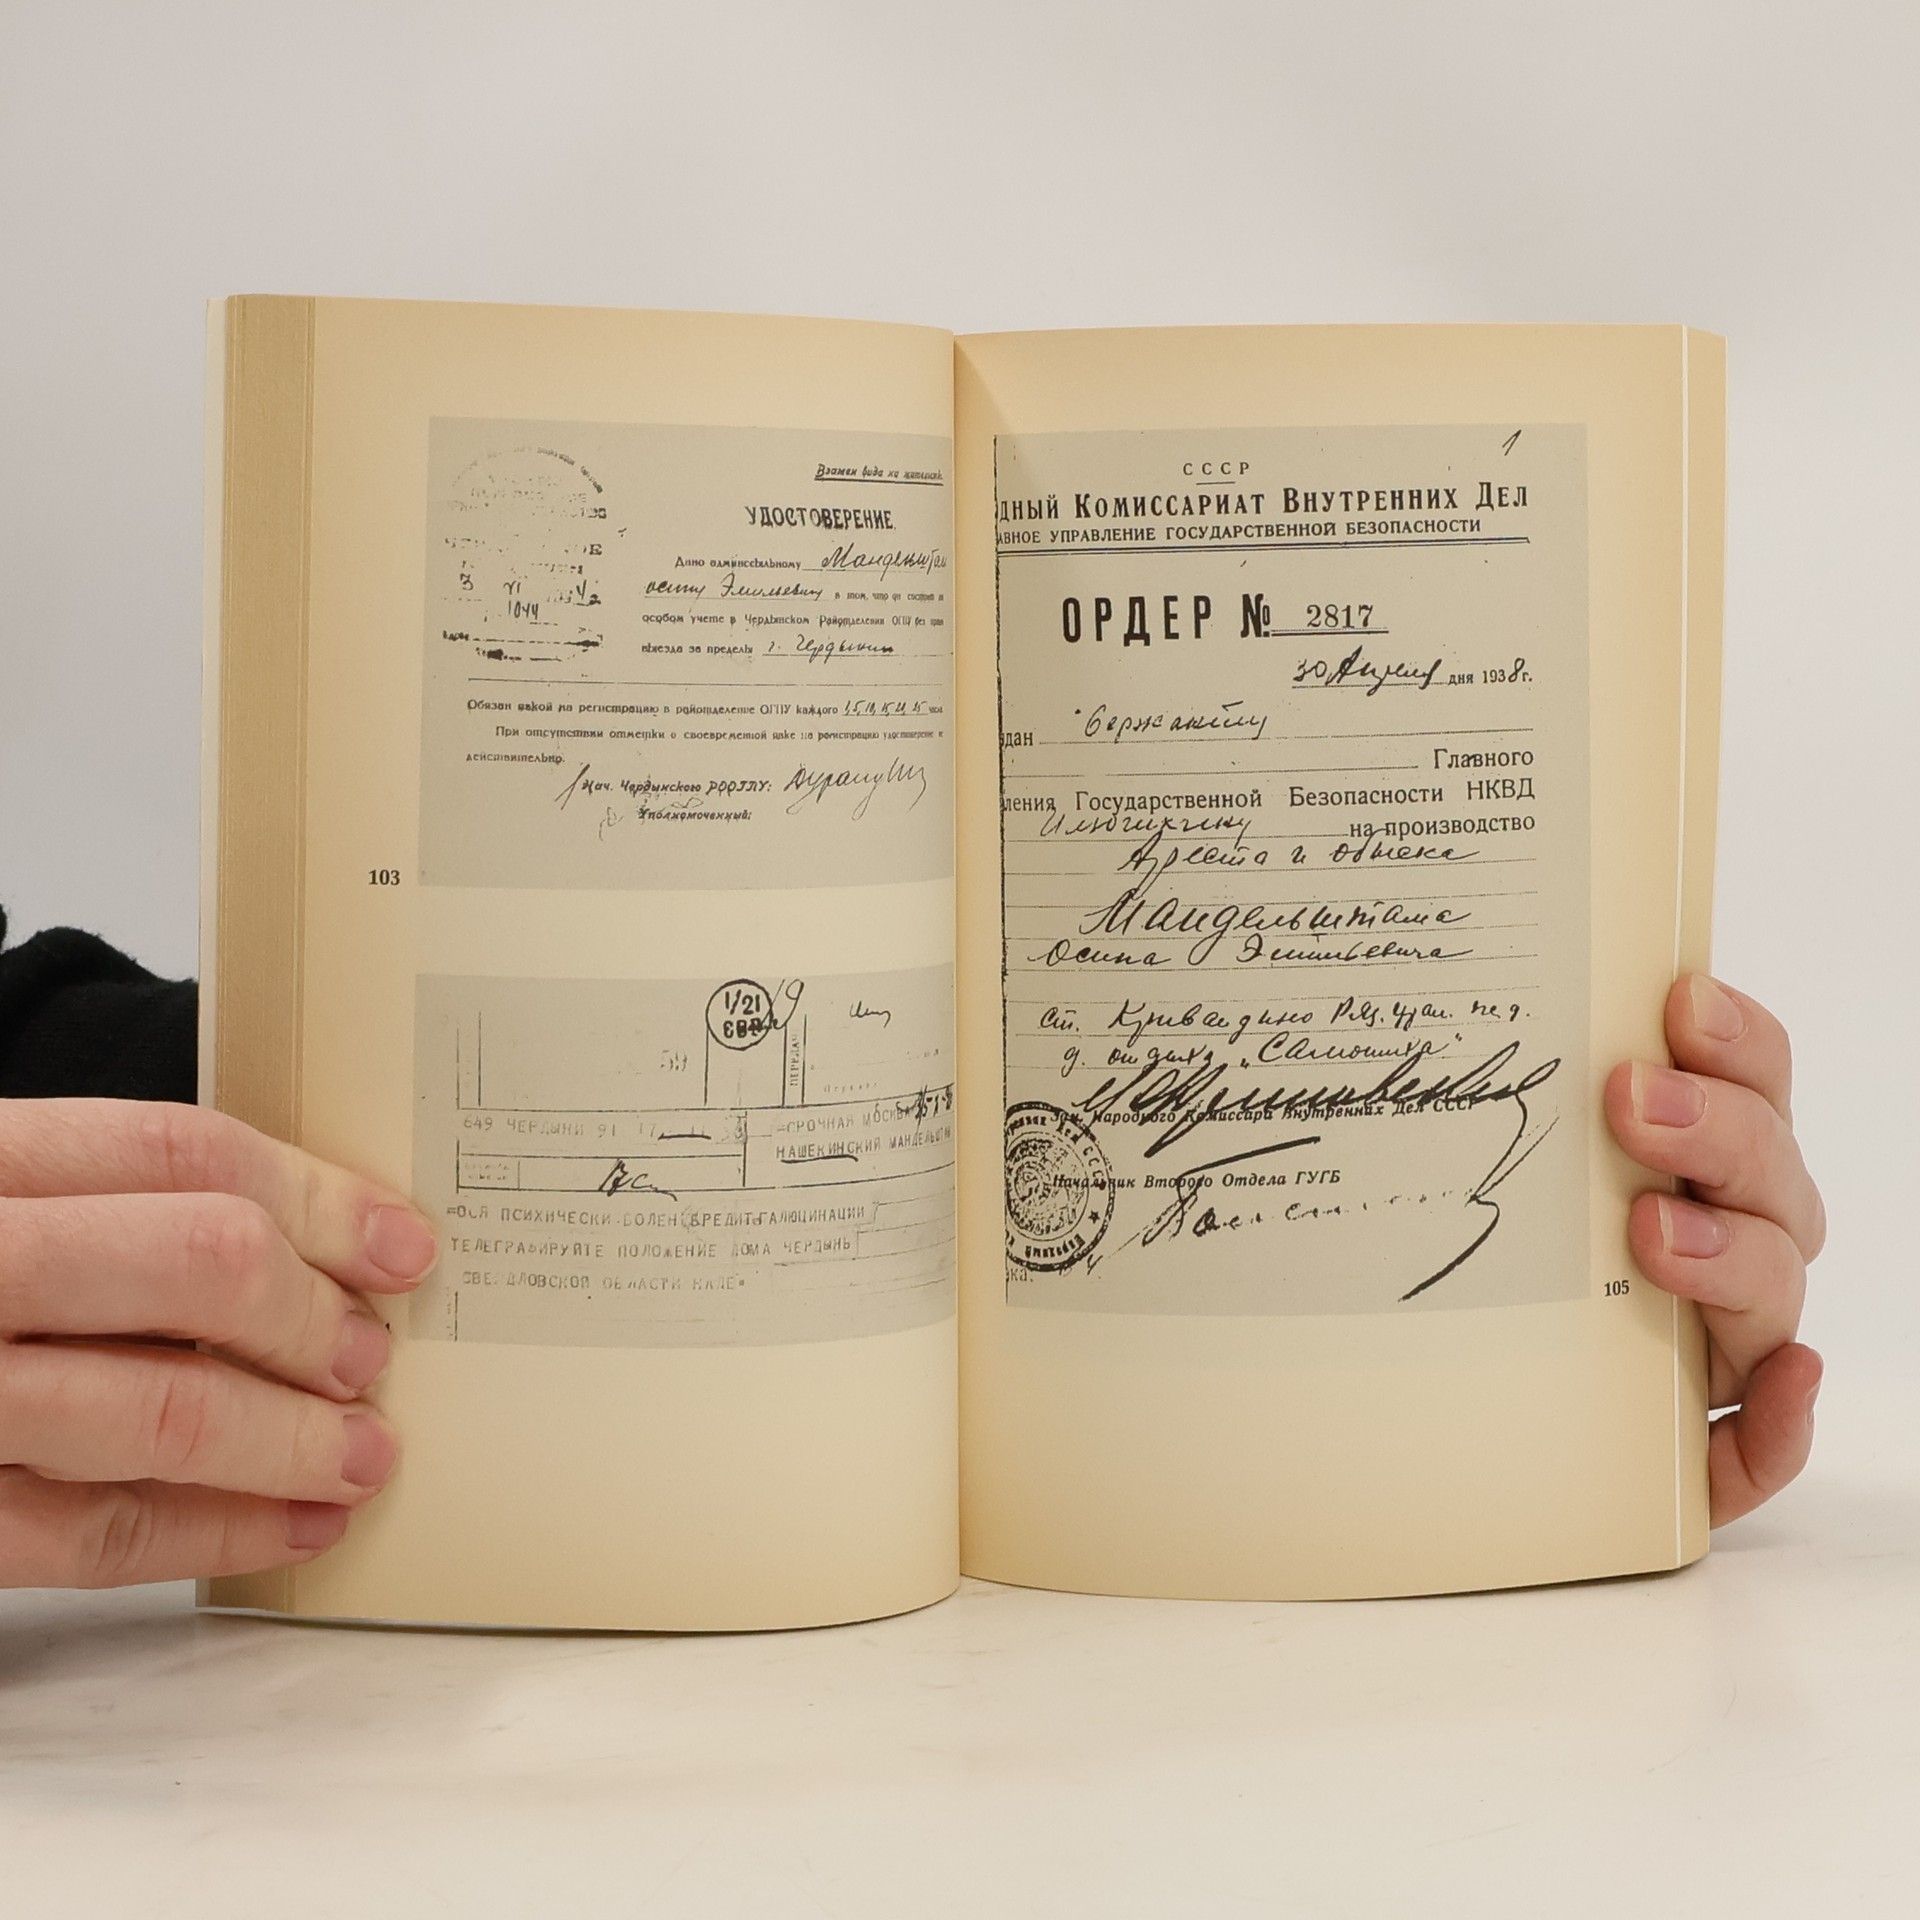 Взамен вида на жительств.
УДОСТОВЕРЕНИЕ.
Дано админссыльному Мандельштам
Осипу Эмильевичу в том, что он состоит н
особом учете в Чердынском Райотделении ОГПУ без прав
выезда за пределы г. Чердыни
3 VI
1044
Обязан явкой на регистрацию в райотделение ОГПУ каждого 1, 5, 10, 15, 20, 25 числ
При отсутствии отметки о своевременной явке на регистрацию удостоверение н
действительно.
Нач. Чердынского РООГПУ:
Уполномоченный:
103
1/21
19
ПЕРЕДАЧ
649 ЧЕРДЫНИ 91 17
=СРОЧНАЯ МОСКВА
НАШЕКИНСКИЙ МАНДЕЛЬШТАМ
=ОСЯ ПСИХИЧЕСКИ БОЛЕН БРЕДИТ ГАЛЮЦИНАЦИИ
ТЕЛЕГРАФИРУЙТЕ ПОЛОЖЕНИЕ ДОМА ЧЕРДЫНЬ
СВЕРДЛОВСКОЙ ОБЛАСТИ НАДЕ=
1
СССР
дный Комиссариат Внутренних Дел
авное управление государственной безопасности
ОРДЕР № 2817
30 Апреля дня 1938 г.
дан Сержанту
Главного
ления Государственной Безопасности НКВД
на производство
Ареста и обыска
Мандельштама
Осипа Эмильевича
ст. Кривандино Ряз. Урал. ж. д.
д. отдыха „Саматиха"
Зам. Народного Комиссара Внутренних Дел СССР
Начальник Второго Отдела ГУГБ
105